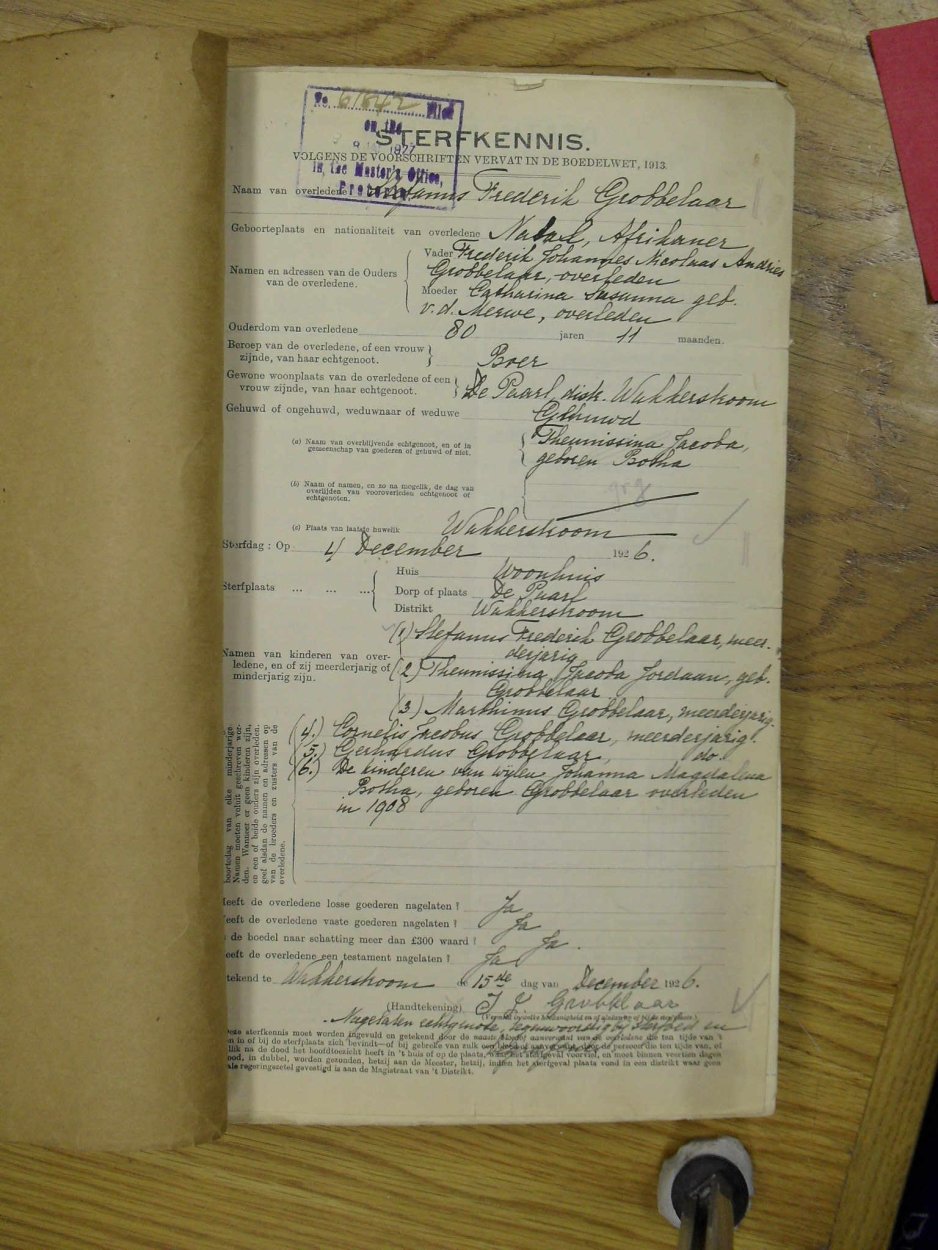 No. 61642 Filed
on the
1927
in the Master's Office,
Pretoria
STERFKENNIS.
VOLGENS DE VOORSCHRIFTEN VERVAT IN DE BOEDELWET, 1913.
Naam van overledene Stefanus Frederik Grobbelaar
Geboorteplaats en nationaliteit van overledene Natal, Afrikaner
Namen en adressen van de Ouders van de overledene.
Vader Frederik Johannes Nicolaas Andries
Grobbelaar, overleden
Moeder Catharina Susanna geb.
v. d. Merwe, overleden
Ouderdom van overledene 80 jaren 11 maanden.
Beroep van de overledene, of een vrouw
zijnde, van haar echtgenoot. Boer
Gewone woonplaats van de overledene of een
vrouw zijnde, van haar echtgenoot. De Paarl, disk. Wakkerstroom
Gehuwd of ongehuwd, weduwnaar of weduwe Gehuwd
(a) Naam van overblijvende echtgenoot, en of in
gemeenschap van goederen of gehuwd of niet.
Theunissina Jacoba,
geboren Botha
(b) Naam of namen, en zo na mogelik, de dag van
overlijden van vooroverleden echtgenoot of
echtgenoten.
(c) Plaats van laatste huwelik Wakkerstroom
Sterfdag : Op 4 December 1926.
Sterfplaats ... ... ...
Huis Woonhuis
Dorp of plaats De Paarl
Distrikt Wakkerstroom
Namen van kinderen van over-
ledene, en of zij meerderjarig of
minderjarig zijn.
(1) Stefanus Frederik Grobbelaar, meer-
derjarig
(2) Theunissina Jacoba Jordaan, geb.
Grobbelaar
(3.) Marthinus Grobbelaar, meerderjarig.
(4.) Cornelis Jacobus Grobbelaar, meerderjarig.
(5.) Gerhardus Grobbelaar, do.
(6.) De kinderen van wijlen Johanna Magdalena
Botha, geboren Grobbelaar overleden
in 1908
boortedag van elke minderjarige.
Namen moeten voluit geschreven wor-
den. Wanneer er geen kinderen zijn,
en een of beide ouders zijn overleden,
geef alsdan de namen en adressen op
van de broeders en zusters van de
overledene.
Heeft de overledene losse goederen nagelaten ? Ja
Heeft de overledene vaste goederen nagelaten ? Ja
de boedel naar schatting meer dan £300 waard ? Ja.
Heeft de overledene een testament nagelaten ? Ja
tekend te Wakkerstroom de 15de dag van December 1926.
(Handtekening) Grobbelaar
Nagelaten echtgenote,
Deze sterfkennis moet worden ingevuld en getekend door de naaste bloed of aanverwant van de overledene die ten tijde van 't
en in of bij de sterfplaats zich bevindt—of bij gebreke van zulk een bloed of aanverwant, door de persoon die ten tijde van, of
lik na de dood het hoofdtoezicht heeft in 't huis of op de plaats, waar het sterfgeval voorviel, en moet binnen veertien dagen
ood, in dubbel, worden gezonden, hetzij aan de Meester, hetzij, indien het sterfgeval plaats vond in een distrikt waar geen
als regeringszetel gevestigd is aan de Magistraat van 't Distrikt.